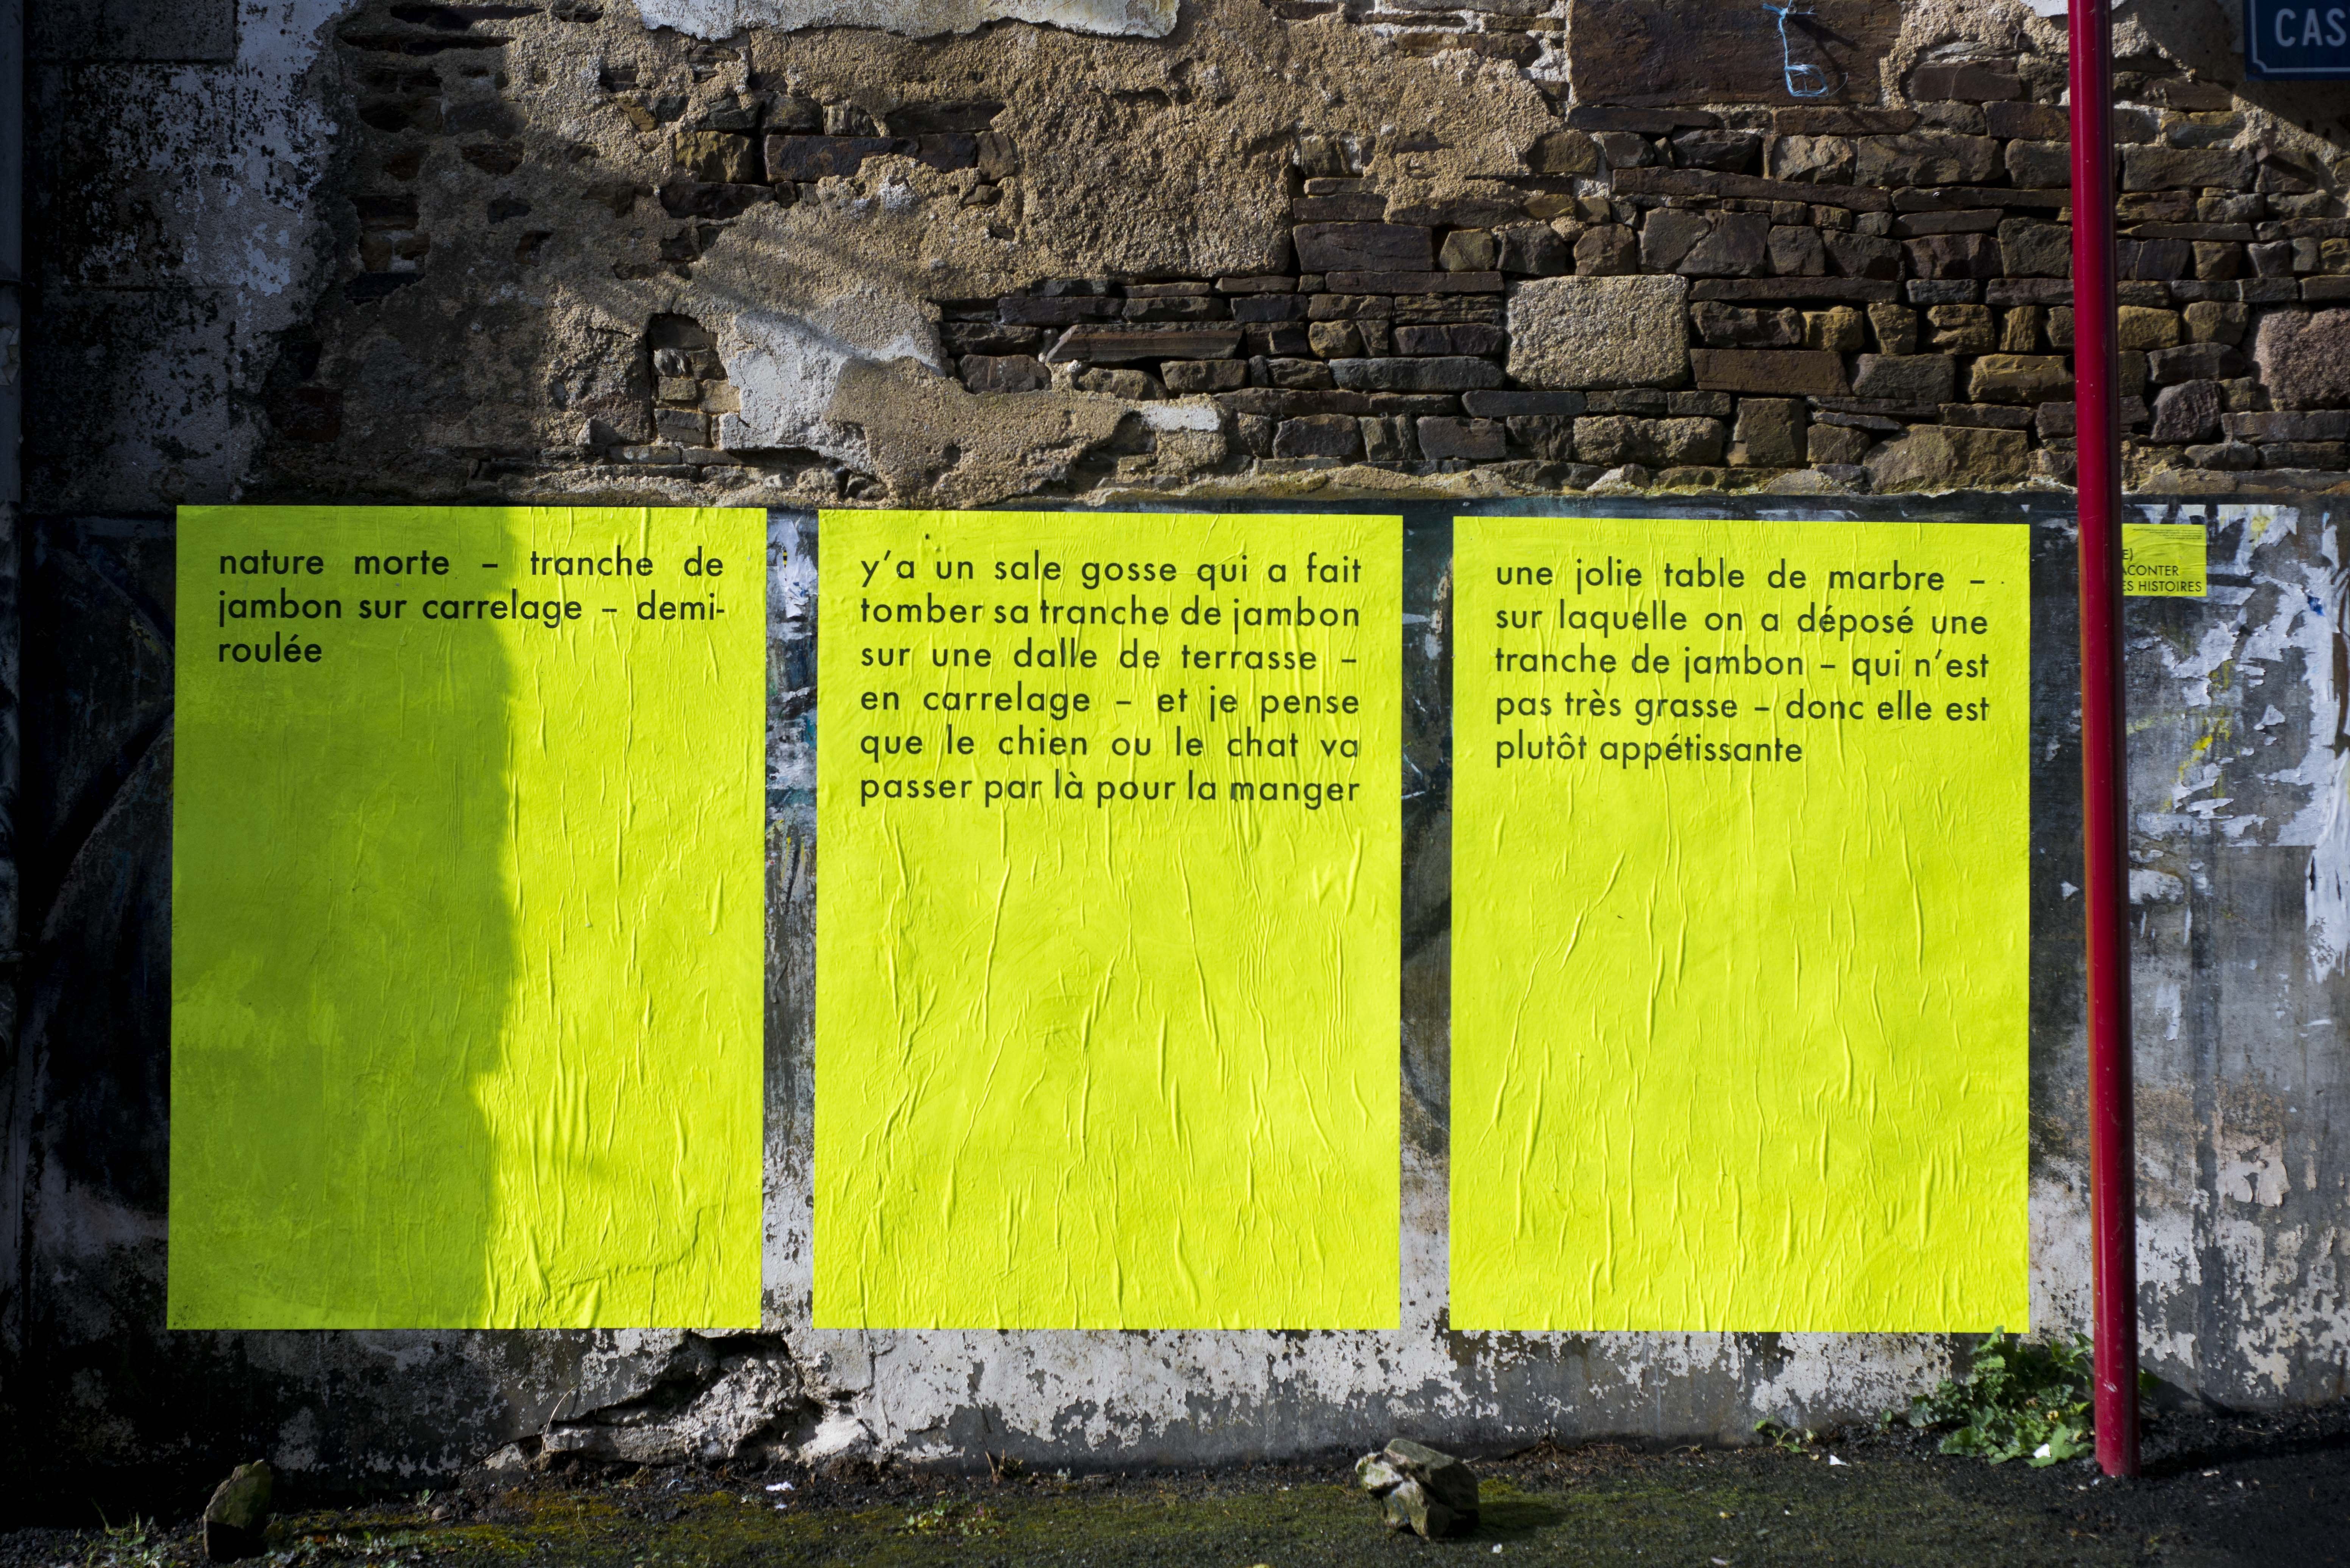 nature morte – tranche de
jambon sur carrelage – demi-
roulée
y'a un sale gosse qui a fait
tomber sa tranche de jambon
sur une dalle de terrasse –
en carrelage – et je pense
que le chien ou le chat va
passer par là pour la manger
une jolie table de marbre –
sur laquelle on a déposé une
tranche de jambon – qui n'est
pas très grasse – donc elle est
plutôt appétissante
E)
ACONTER
ES HISTOIRES
CAS